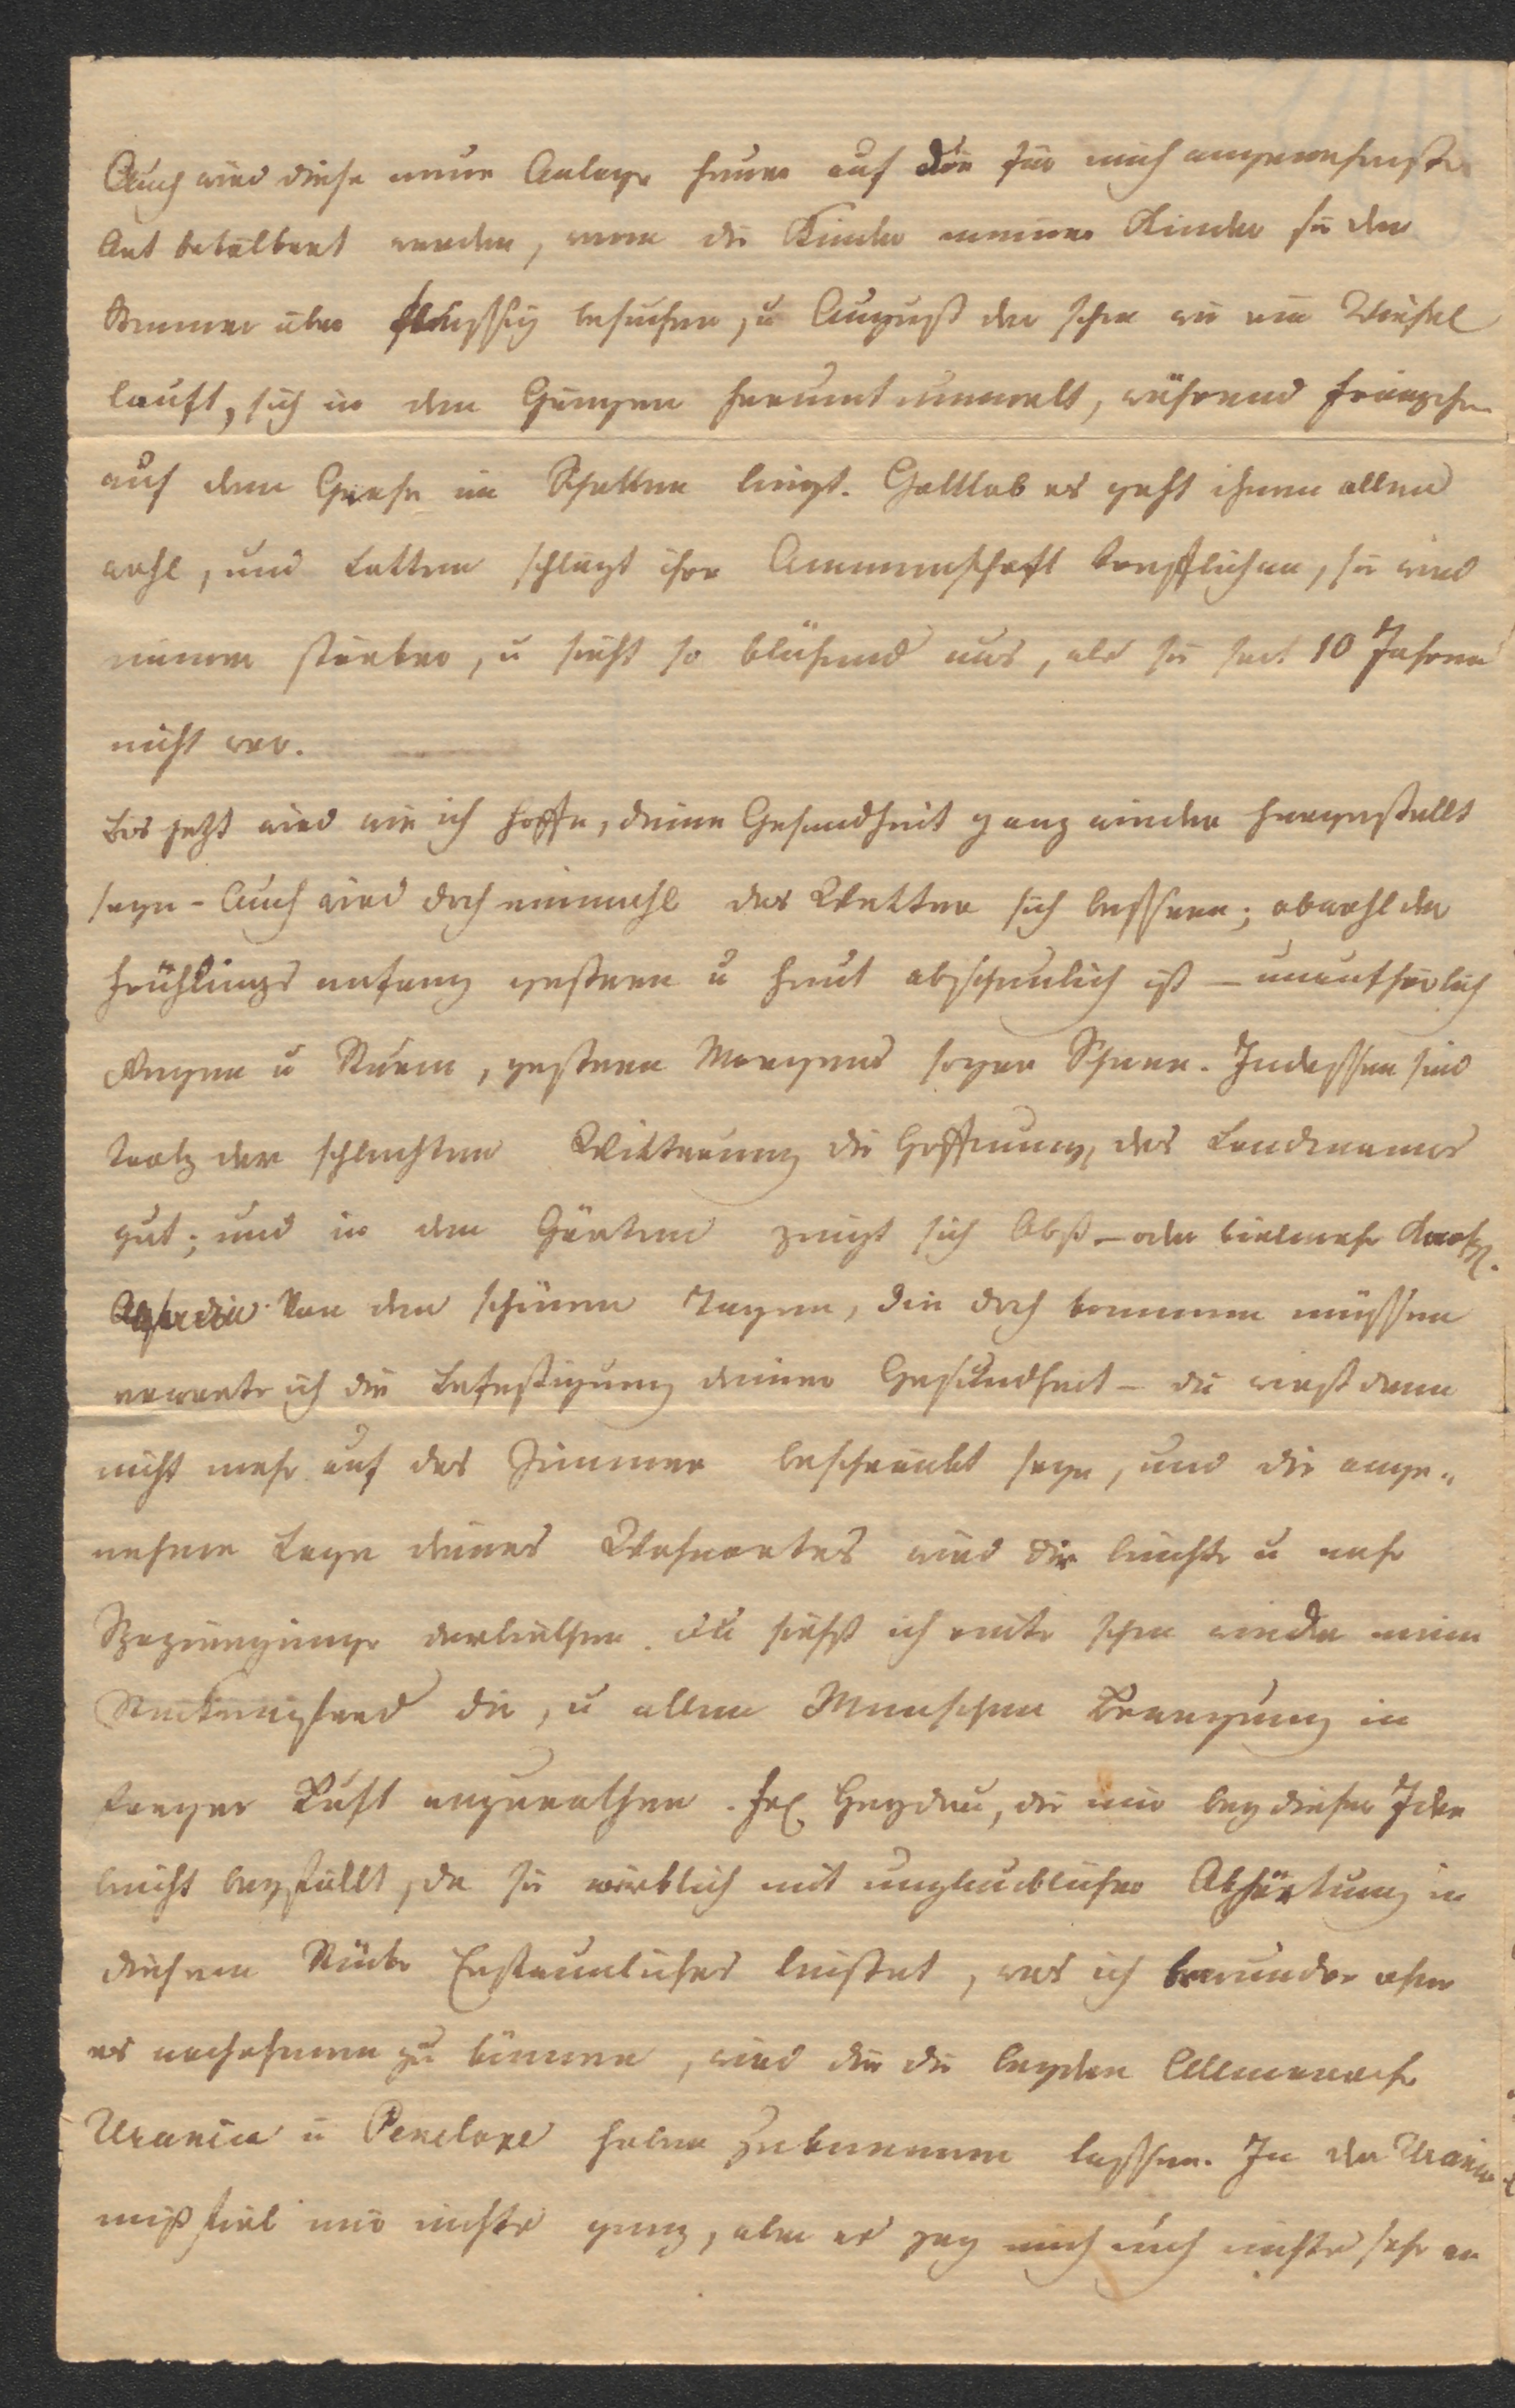 Auch wird diese neue Anlage heuer auf die für mich angenehmste
Art bevölkert werden, wenn die Kinder meiner Kinder sie den
Sommer über fleissig besuchen, u August der schon wie ein Wiesel
lauft, sich in den Gängen herumtummelt, während Fränzchen
auf dem Grase im Schatten liegt. Gottlob es geht ihnen allen
wohl, und Lotten schlägt ihre Ammenschaft trefflich an, sie wird
immer stärker, u sieht so blühend aus, als sie seit 10 Jahren
nicht war.
Bis jetzt wird wie ich hoffe, deine Gesundheit ganz wieder hergestellt
seyn - Auch wird doch einmahl das Wetter sich bessern; obwohl der
Frühlingsanfang gestern u heut abscheulich ist - unaufhörlich
Regen u Sturm, gestern Morgens sogar Schnee. Indessen sind
trotz der schlechten Witterung die Hoffnung des Landmanns
gut; und in den Gärten zeigt sich Obst - oder vielmehr
Von den schönen Tagen, die doch kommen müssen
erwarte ich die Befestigung deiner Gesundheit - du wirst dann
nicht mehr auf das Zimmer beschränkt seyn, und die ange-
nehme Lage deines Wohnortes wird dir leichte u nahe
Spaziergänge darbiethen. Du siehst ich reite schon wieder mein
Steckenpferd dir, u allen Menschen Bewegung in
freyer Luft anzurathen. Frl Heydau, die mir bey dieser Idee
leicht beyfällt, da sie wirklich mit unglaublicher Abhärtung in
diesem Stücke Erstaunliches leistet, was ich bewundre ohne
es nachahmen zu können, wird dir die beyden Allmanache
Urania u Penelope haben zukommen lassen. In der Urania
mißfiel mir nichts ganz, aber es zog mich auch nichts sehr an